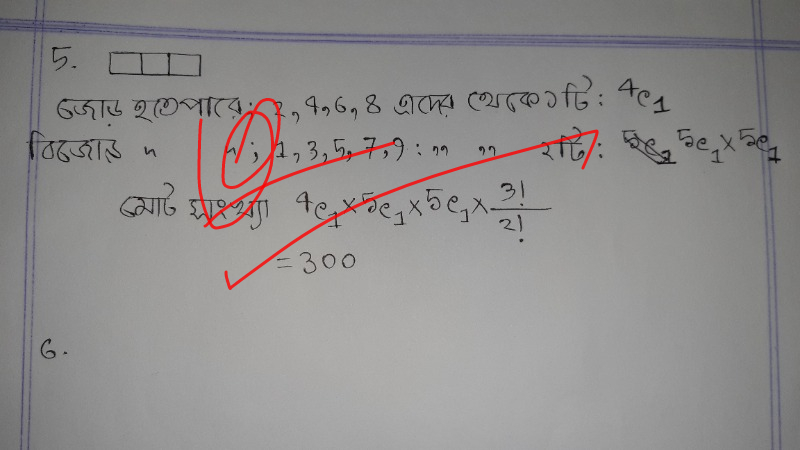 5.
জোড় হতে পারে: 2, 4, 6, 8 এদের থেকে ১টি: ⁴c₁
বিজোড় " "; 1, 3, 5, 7, 9: " " ২টি: ⁵c₁×⁵c₁
মোট সংখ্যা ⁴c₁×⁵c₁×⁵c₁×3!/2!
=300
6.